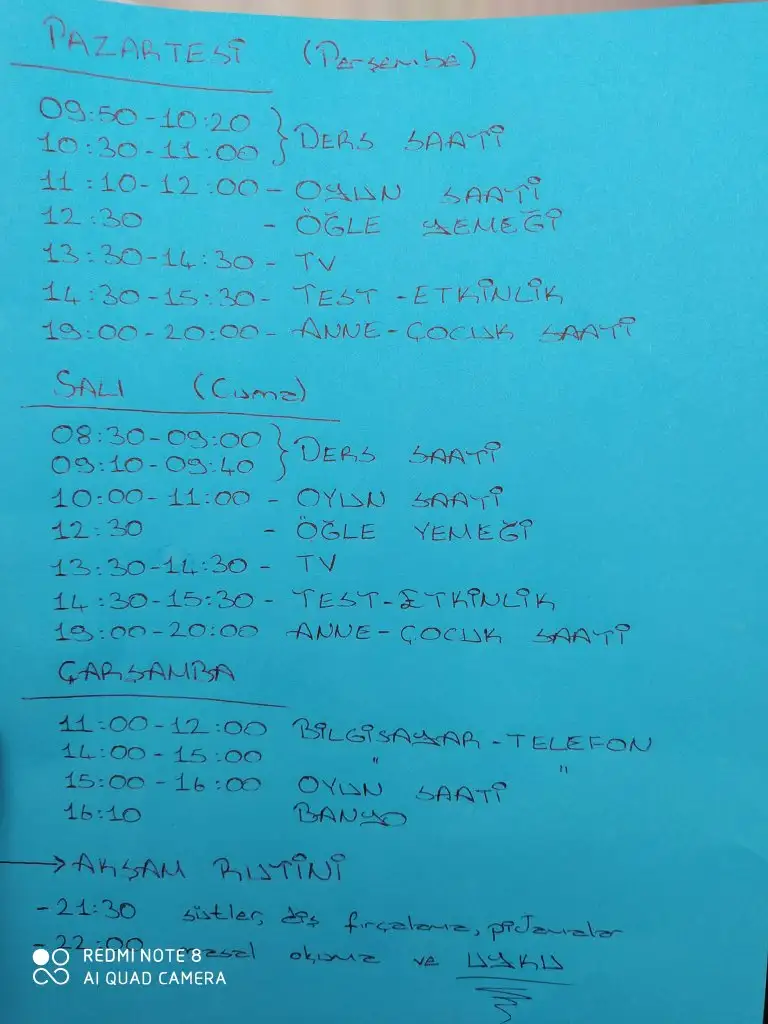 PAZARTESİ (Perşembe)
09:50-10:20
10:30-11:00 } DERS SAATİ
11:10-12:00- OYUN SAATİ
12:30 - ÖĞLE YEMEĞİ
13:30-14:30- TV
14:30-15:30- TEST-ETKİNLİK
19:00-20:00- ANNE-ÇOCUK SAATİ
SALI (Cuma)
08:30-09:00
09:10-09:40 } DERS SAATİ
10:00-11:00 - OYUN SAATİ
12:30 - ÖĞLE YEMEĞİ
13:30-14:30 - TV
14:30-15:30- TEST-ETKİNLİK
19:00-20:00 ANNE-ÇOCUK SAATİ
ÇARŞAMBA
11:00-12:00 BİLGİSAYAR-TELEFON
14:00-15:00 " "
15:00-16:00 OYUN SAATİ
16:10 BANYO
→ AKŞAM RUTİNİ
-21:30 sütler, diş fırçalama, pijamalar
-22:00 masal okuma ve UYKU
REDMI NOTE 8
AI QUAD CAMERA